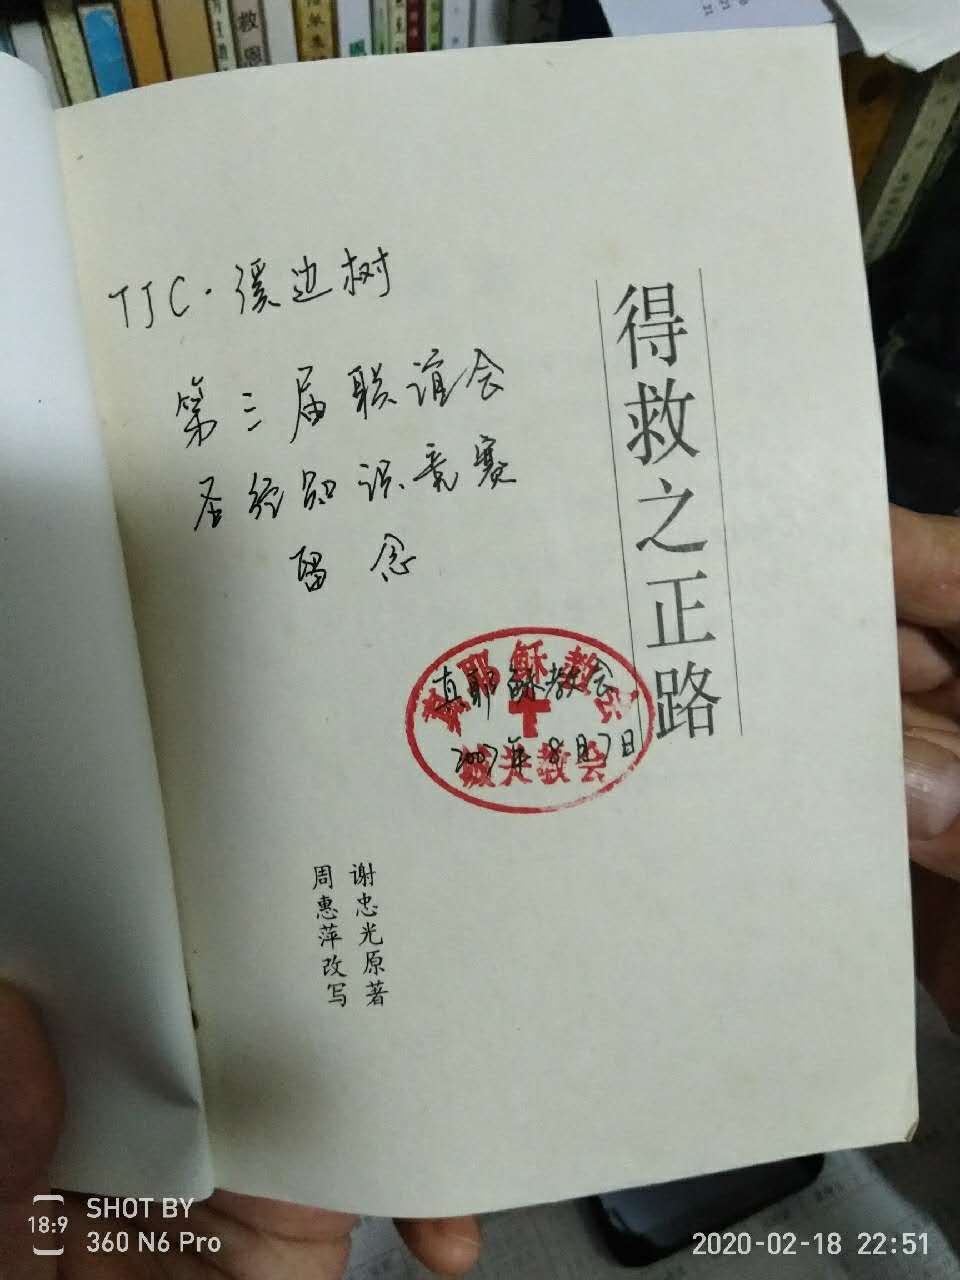 救恩
TJC·溪边树
第三届联谊会
圣经知识竞赛
留念
得救之正路
真耶稣教会
真耶稣教会
2007年8月7日
教会
谢忠光原著
周惠萍改写
18:9
SHOT BY
360 N6 Pro
2020-02-18 22:51